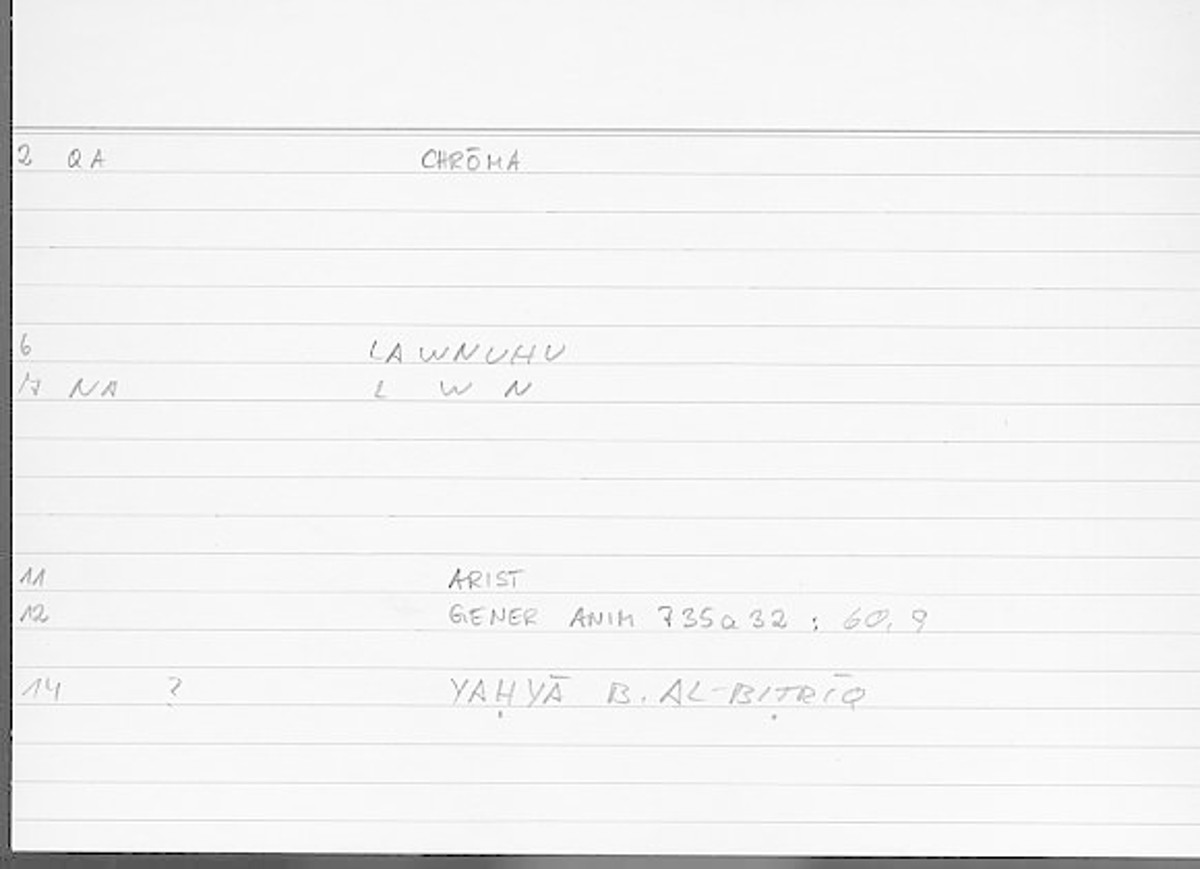 2 QA CHRŌMA
6 LAWNUHU
17 NA L W N
11 ARIST
12 GENER ANIM 735a32 : 60,9
14 ? YAḤYĀ B. AL-BIṬRĪQ